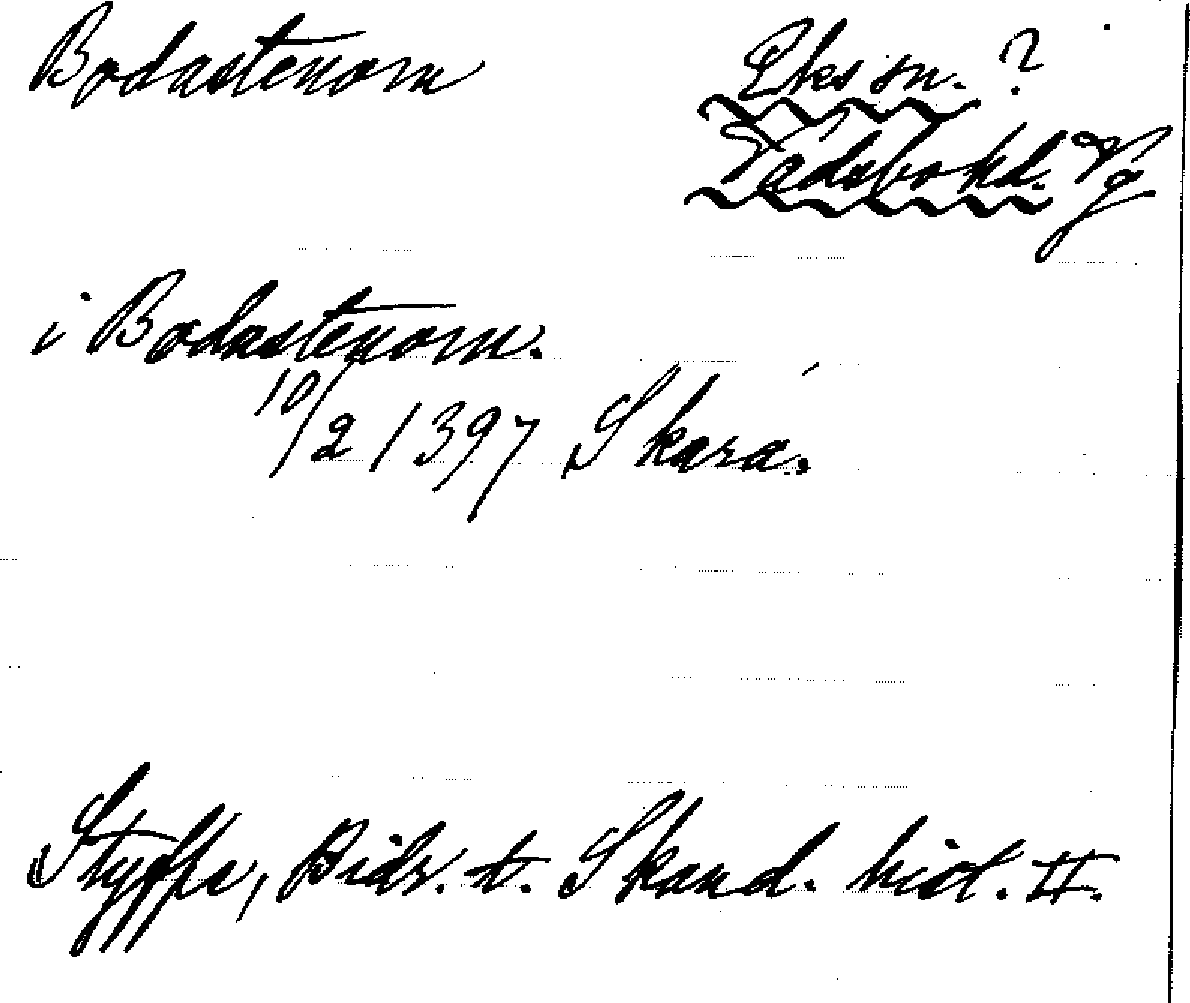 Bodastenom
Eks sn. ?
Vadsbo hd. Vg
i Bodastenom.
10/2 1397 Skara.
Styffe, Bidr. t. Skand. hist. II.